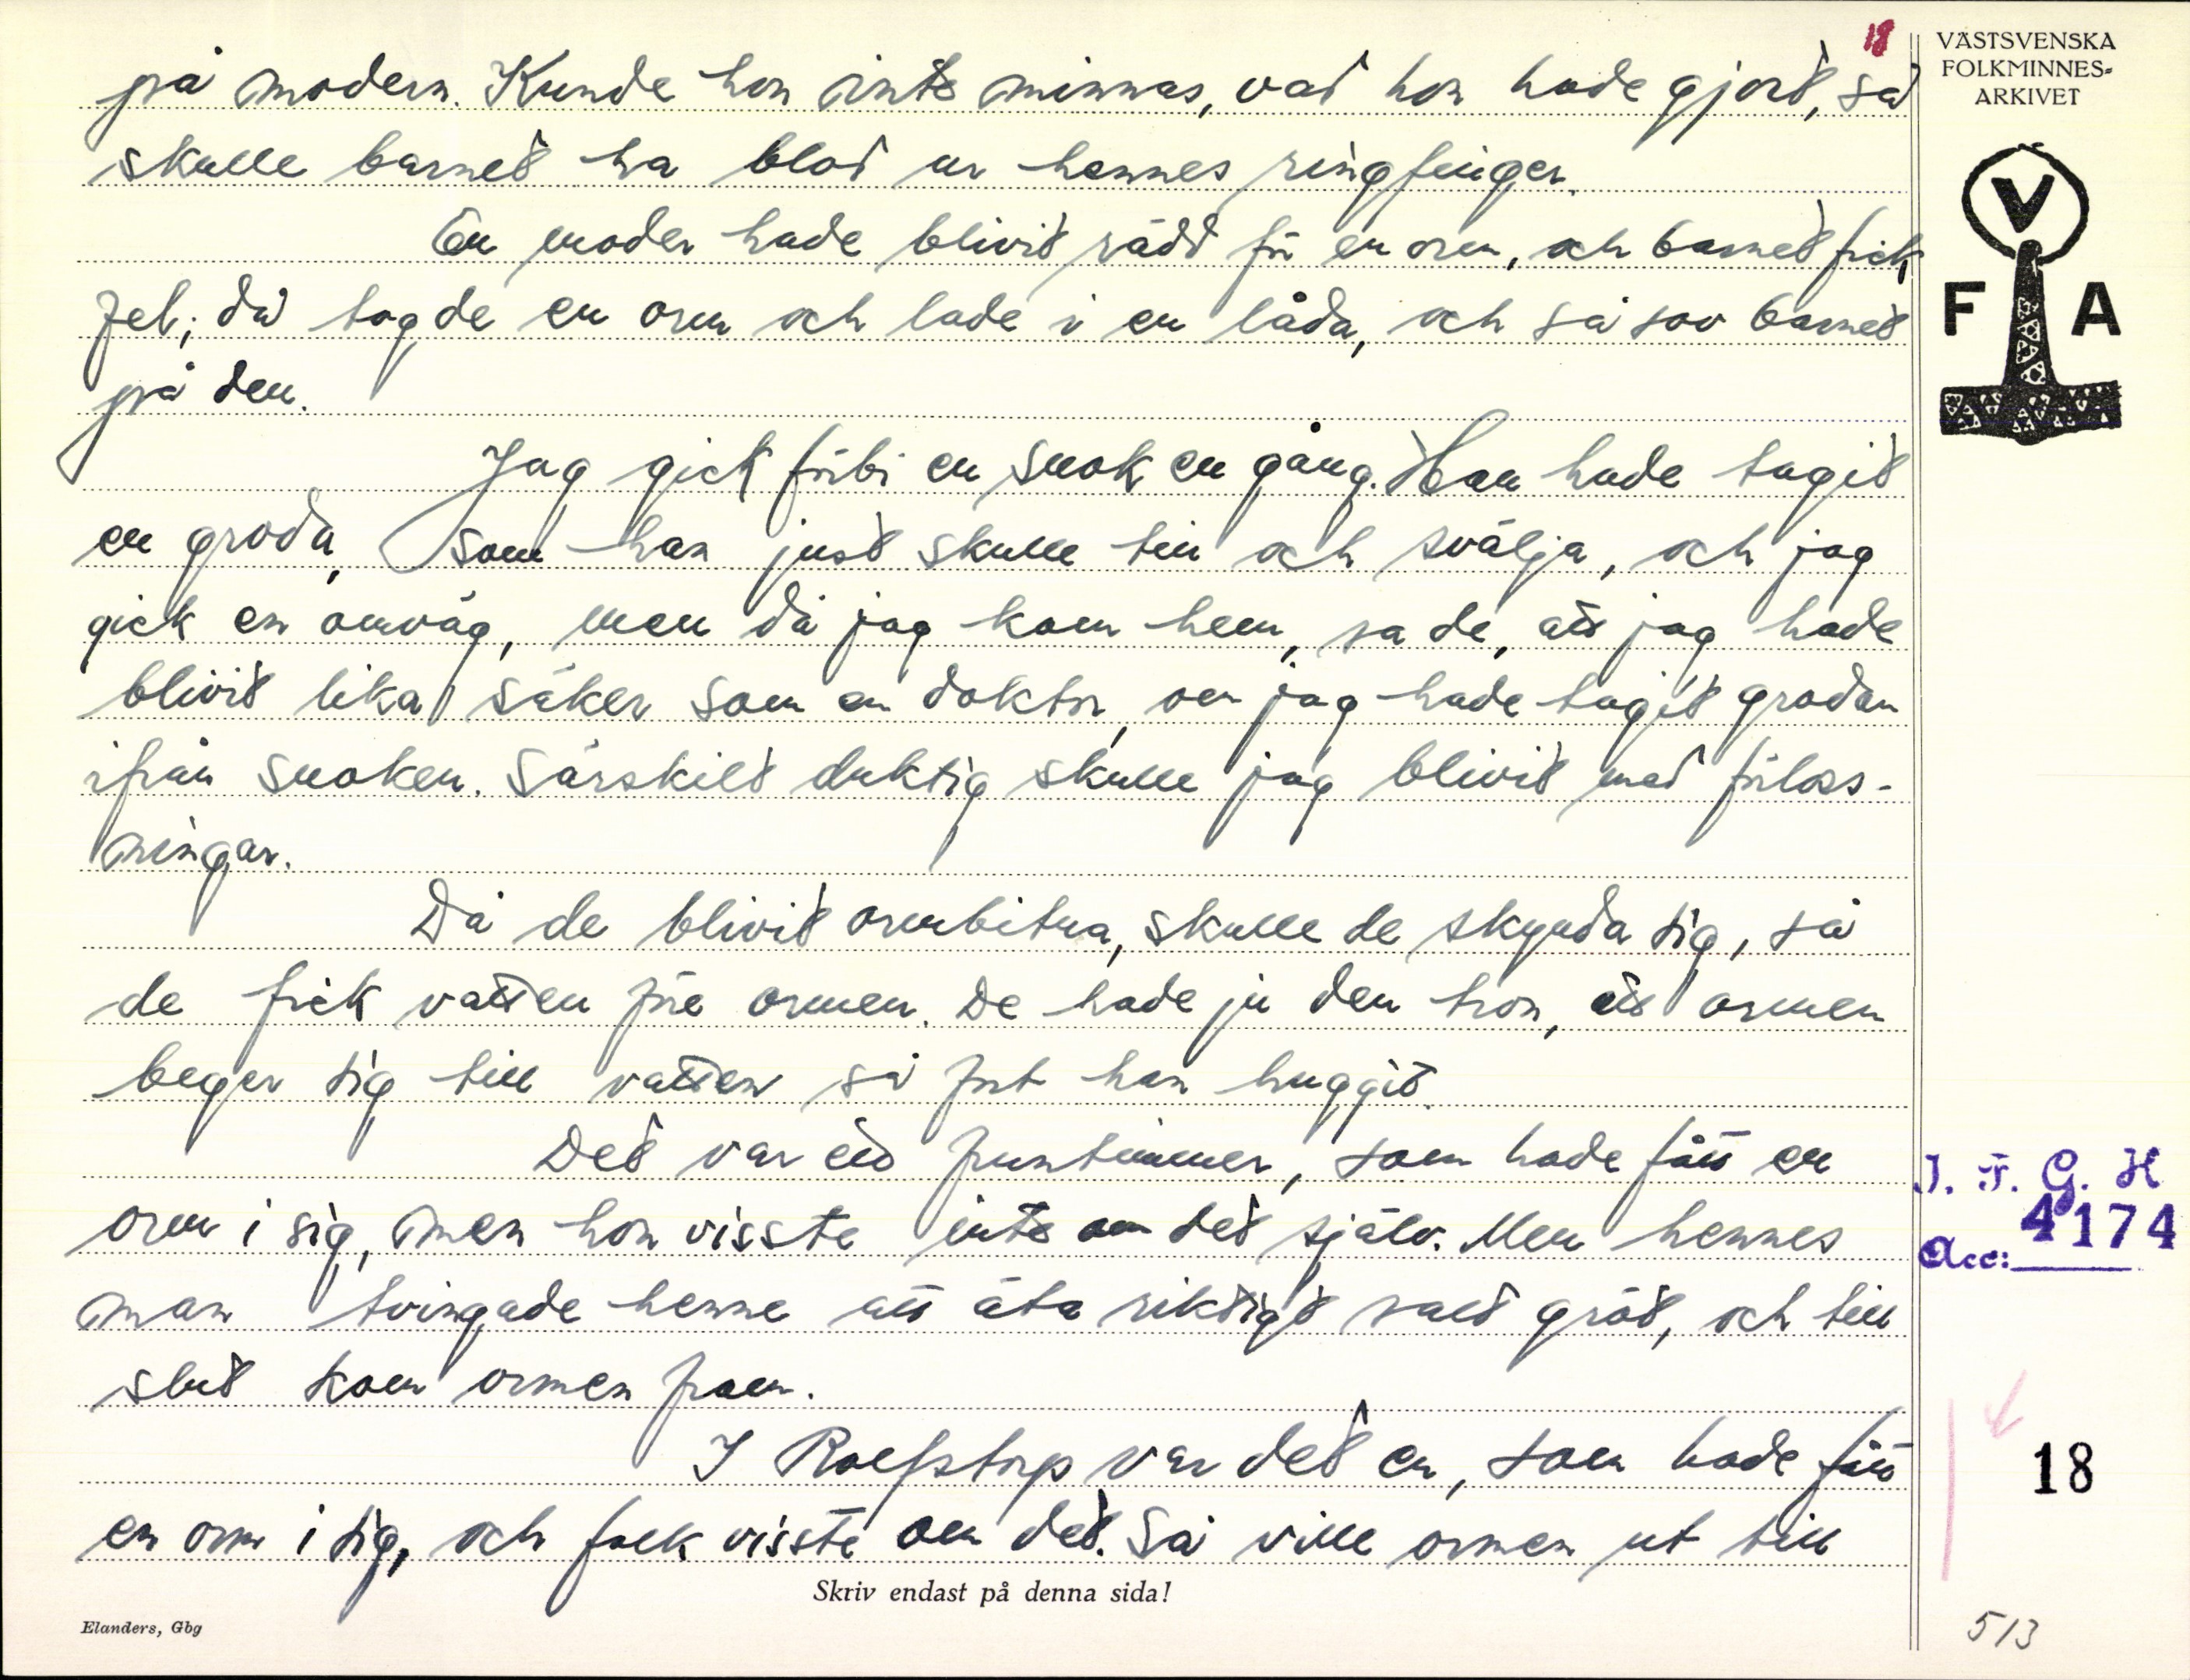 18
på modern. Kunde hon inte minnas, vad hon hade gjort, så
skulle barnet ha blod ur hennes ringfinger.
En moder hade blivit rädd för en orm, och barnet fick
fel; då tog de en orm och lade i en låda, och så sov barnet
på den.
Jag gick förbi en snok en gång. Han hade tagit
en groda, som han just skulle till och svälja, och jag
gick en omväg, men då jag kom hem, sa de, att jag hade
blivit lika säker som en doktor, om jag hade tagit grodan
ifrån snoken. Särskilt duktig skulle jag blivit med förloss-
ningar.
Då de blivit ormbitna, skulle de skynda sig, så
de fick vatten före ormen. De hade ju den tron, att ormen
beger sig till vatten så fort han huggit.
Det var ett fruntimmer, som hade fått en
orm i sig, men hon visste inte om det själv. Men hennes
man tvingade henne att äta riktigt salt gröt, och till
slut kom ormen fram.
I Rolfstorp var det en, som hade fått
en orm i sig, och folk visste om det. Så ville ormen ut till
Skriv endast på denna sida!
Elanders, Gbg
VÄSTSVENSKA
FOLKMINNES-
ARKIVET
V
F A
I. F. G. H
4174
Acc:
18
513